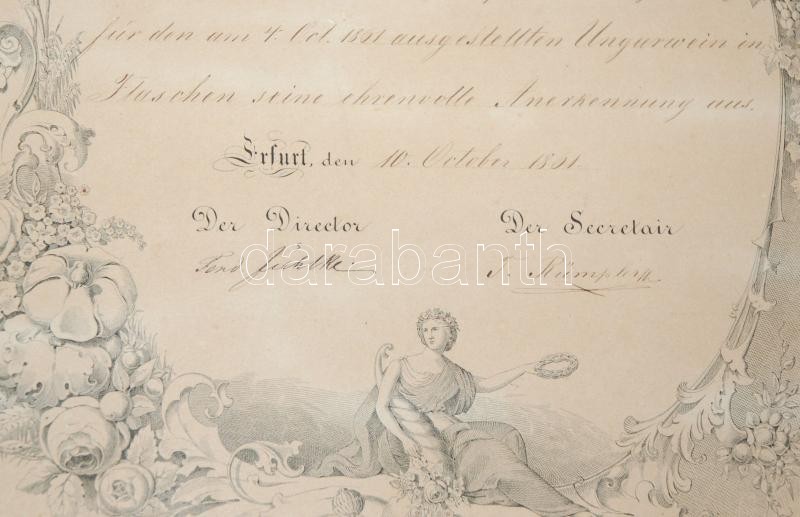 für den am 4. Oct. 1861 ausgestellten Ungarwein in
Flaschen seine ehrenvolle Anerkennung aus.
Erfurt, den 10. October 1861.
Der Director
Der Secretair
Ferd. Jühlke
T. Rümpler
darabanth